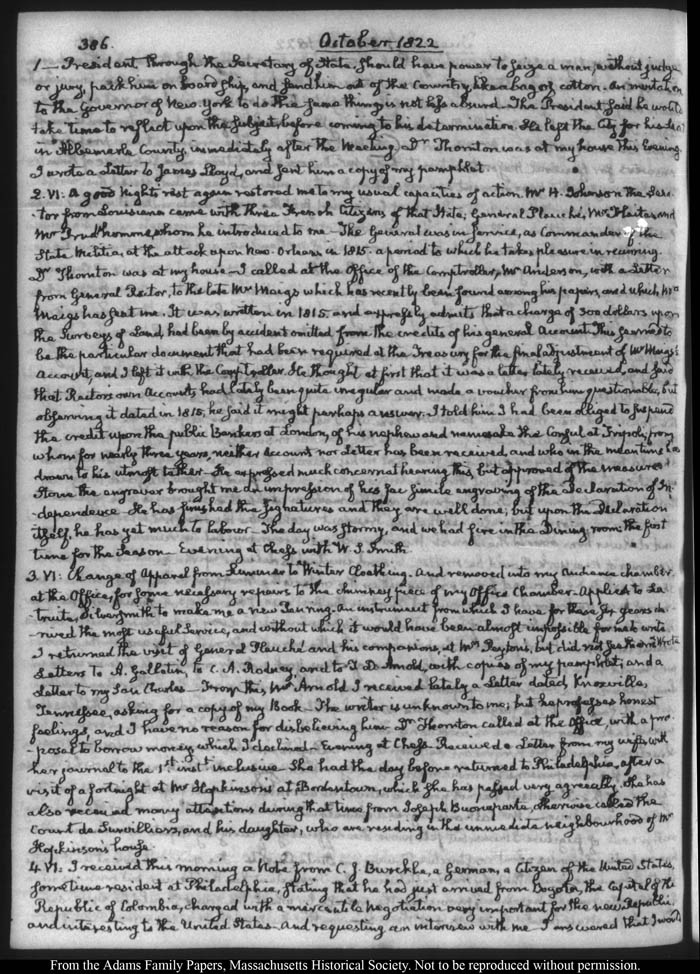 386.
October 1822
1.— President, through the Secretary of State should have power to seize a man, without judge
or jury, pack him on board ship, and send him out of the Country, like a bag of cotton. An invitation
to the Governor of New-York to do the same thing is not less absurd. The President said he would
take time to reflect upon the subject, before coming to his determination. He left the City for his Seat
in Albemarle County, immediately after the Meeting. Dr Thornton was at my house this Evening.
I wrote a Letter to James Lloyd, and sent him a copy of my pamphlet.
2. VI: A good Night's rest again restored me to my usual capacities of action. Mr H. Johnson the Sena-
tor from Louisiana came with three French Citizens of that State; General Plauché, Mr and
Mr Prudhomme, whom he introduced to me— The General was in service, as Commander of the
State Militia, at the attack upon New-Orleans in 1815. a period to which he takes pleasure in recurring.
Dr Thornton was at my house— I called at the Office of the Comptroller, Mr Anderson, with a Letter
from General Rector, to the late Mr Meigs which has recently been found among his papers, and which Mrs
Meigs has sent me. It was written in 1815. and expressly admits that a charge of 300 dollars upon
the Surveys of Land, had been by accident omitted from the credits of his general Account. This seems to
be the particular document that had been required at the Treasury for the final adjustment of Mr Meigs's
Account, and I left it with the Comptroller. He thought at first that it was a letter lately received, and said
that Rectors own Accounts had lately been quite irregular and made a voucher from him questionable, but
observing it dated in 1815, he said it might perhaps answer. I told him I had been obliged to suspend
the credit upon the public Bankers at London, of his nephew and namesake the Consul at Tripoli, from
whom for nearly three years, neither account nor Letter has been received, and who in the meantime has
drawn to his utmost tether— He expressed much concern at hearing this, but approved of the measure
Stone the engraver brought me an impression of his fac simile engraving of the Declaration of In-
dependence. He has finished the signatures and they are well done; but upon the Declaration
itself, he has yet much to labour— The day was stormy, and we had fire in the Dining room the first
time for the Season— Evening at Chess with W. S. Smith.
3. VI: Change of Apparel from Summer to Winter Cloathing. And removed into my Audience chamber,
at the Office, for some necessary repairs to the chimney piece of my Office Chamber— Applied to La-
truite, Silversmith to make me a new . An instrument from which I have for these six years de-
rived the most useful Service, and without which it would have been almost impossible for me to write
I returned the visit of General Plauché and his companions, at Mrs Peyton's, but did not see them. Wrote
Letters to A. Gallatin, to C. A. Rodney, and to T. D. Arnold, with copies of my pamphlet; and a
Letter to my Son Charles— From this, Mr Arnold I received lately a Letter dated, Knoxville,
Tennessee, asking for a copy of my Book— The writer is unknown to me; but he professes honest
feelings, and I have no reason for disbelieving him— Dr Thornton called at the Office, with a pro-
posal to borrow money, which I declined— Evening at Chess. Received a Letter from my wife, with
her journal to the 1st instt inclusive. She had the day before returned to Philadelphia, after a
visit of a fortnight at Mr Hopkinson's at Bordentown, which she has passed very agreeably. She has
also received many attentions during that time from Joseph Buonaparte, otherwise called the
Count de Survilliers, and his daughter, who are residing in the immediate neighbourhood of Mr
Hopkinson's house.
4. VI: I received this morning a Note from C. J. Burckle, a German, a Citizen of the United States,
sometime resident at Philadelphia, stating that he had just arrived from Bogota, the Capital of the
Republic of Colombia, charged with a mercantile negotiation very important for the new Republic,
and interesting to the United States— And requesting an interview with me. I answered that I would
From the Adams Family Papers, Massachusetts Historical Society. Not to be reproduced without permission.